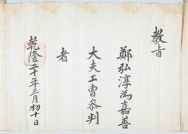 教旨
鄭弘淳爲嘉善
大夫工曹參判
者
乾隆二十年三月初十日